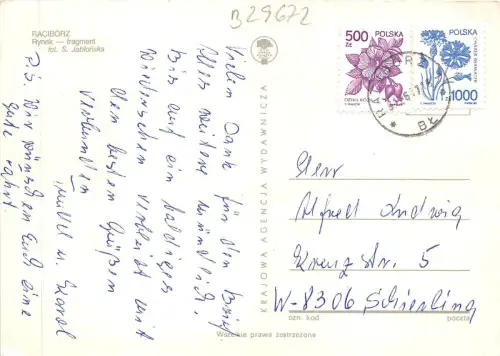 B29672
RACIBÓRZ
Rynek — fragment
fot. S. Jabłońska
Vielen Dank für den Brief.
Alles weitere mündlich.
Bis auf ein baldiges
Wiedersehen verbleibt mit
den besten Grüßen
verbunden
u. Karol
P.S. Wir wünschen Euch eine
gute Fahrt.
KRAJOWA AGENCJA WYDAWNICZA
500
Zł
POLSKA
POLSKA
zł 1000
Herr
Alfred Ludwig
Kreuzstr. 5
W-8306 Schierling
ozn. kod
poczta
Wszelkie prawa zastrzeżone